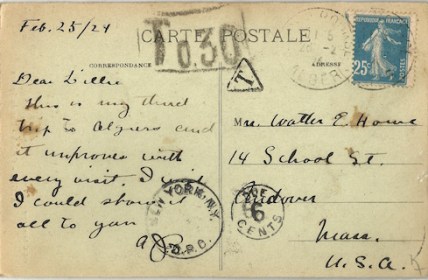 Feb. 25/24
T 0.30
CARTE POSTALE
CORRESPONDANCE
ADRESSE
T
REPUBLIQUE FRANÇAISE
25c
POSTES
ALGER
Dear Lillie
This is my third
trip to Algiers and
it improves with
every visit. I wish
I could show it
all to you
Mrs. Walter E. Howe
14 School St.
Andover
Mass.
U.S.A.
NEW YORK, N.Y.
DUE
6
CENTS